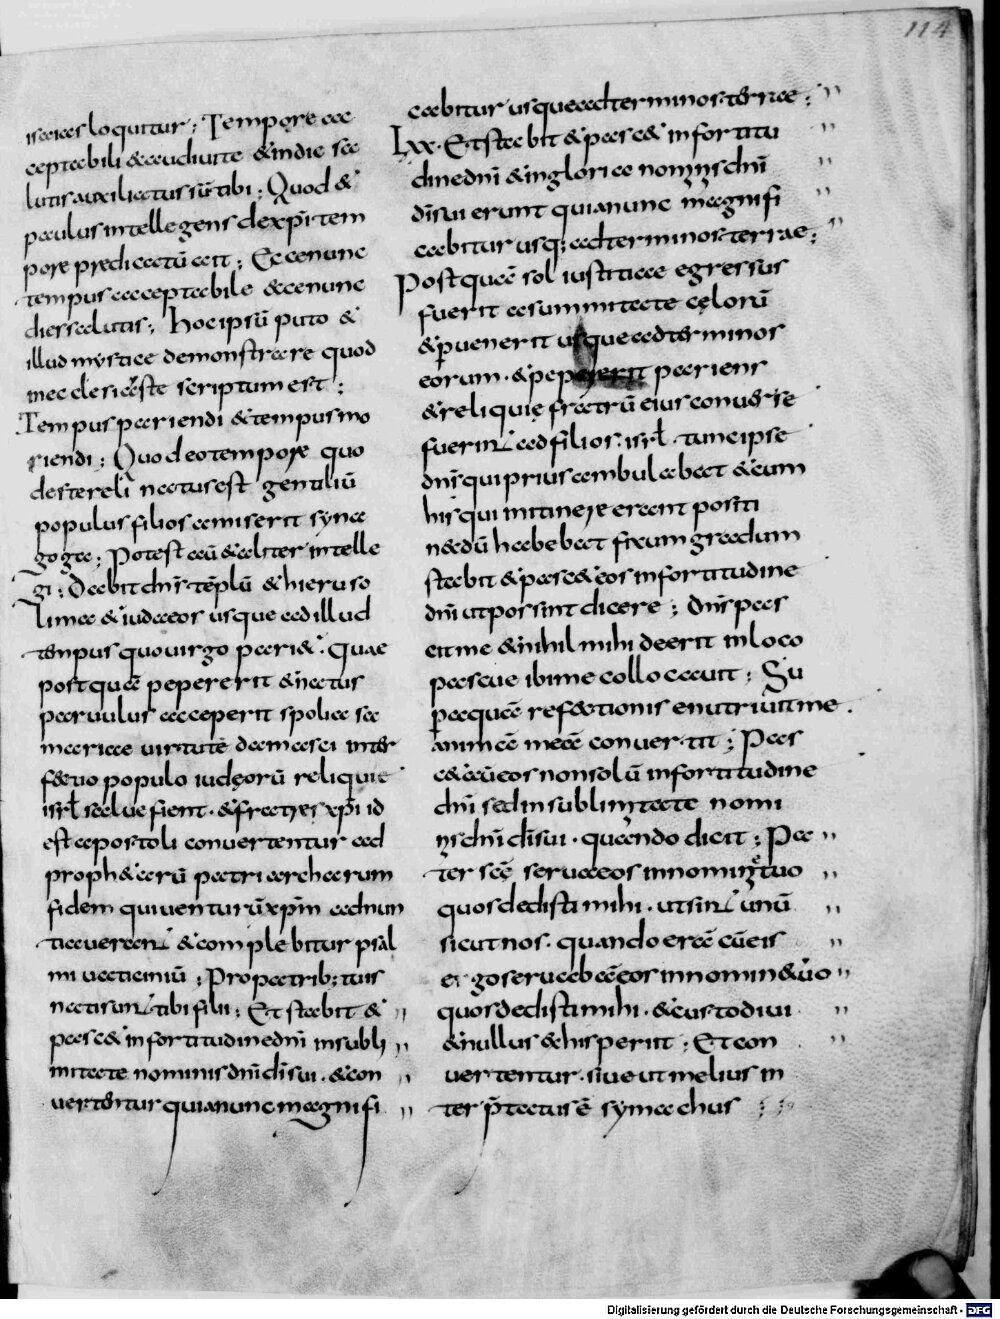 114
isaias loquitur; Tempore ac
ceptabili exaudiui te & in die sa
lutis auxiliatus sū tibi; Quod &
paulus intellegens de xp̄i tem
pore predicatū ait; Ecce nunc
tempus acceptabile & ecce nunc
dies salutis; hoc ipsū puto &
illud mystice demonstrare quod
in ecclesiaste scriptum est;
Tempus pariendi & tempus mo
riendi; Quod eo tempore quo
de sterili natus est gentiliū
populus filios amiserit syna
goga; Potest aū & aliter intelle
gi; Dabit dn̄s tēplū & hieruso
lima & iudaeos usque ad illud
tempus quo uirgo pari&. Quae
postquā pepererit & natus
paruulus acceperit spolia sa
mariae uirtutē damasci inter
fectio populo iudęorū reliquie
isrł saluae fient. & fratres xp̄i id
est apostoli conuertentur ad
prophetarū patriarcharum
fidem qui uenturū xp̄m adnun
tiauerant & complebitur psal
mi uaticiniū; Pro patrib; tuis
nati sunt tibi filii; Et stabit &
pasc& in fortitudine dn̄i in subli
mitate nominis dn̄i dī sui. & con
uertentur quia nunc magnifi
cabitur usque ad terminos terrae;
Lxx. Et stabit & pasc& in fortitu
dine dn̄i & in gloria nominis dn̄i
dī sui erunt quia nunc magnifi
cabitur usq; ad terminos terrae;
Postquā sol iustitiae egressus
fuerit a summitate cęlorū
& puenerit usque ad terminos
eorum. & pepererit pariens
& reliquię fratrū eius conuersę
fuerint ad filios isrł. tunc ipse
dn̄s qui prius ambulabat & cum
his qui in itinere erant positi
necdū habebat fixum gradum
stabit & pasc& eos in fortitudine
dn̄i ut possint dicere; dn̄s pas
cit me & nihil mihi deerit in loco
pascue ibi me collocauit; Su
p aquā refectionis enutriuit me.
animā meā conuertit; Pas
c& aū eos non solū in fortitudine
dn̄i sed in sublimitate nomi
nis dn̄i dī sui. quando dicit; Pa
ter scē serua eos in nomine tuo
quos dedisti mihi. ut sint unū
sicut nos. quando erā cū eis
ego seruabā eos in nomin& uo
quos dedisti mihi. & custodiui
& nullus & his periit; Et con
uertentur. siue ut melius in
terp̄tatus ē symachus
Digitalisierung gefördert durch die Deutsche Forschungsgemeinschaft - DFG